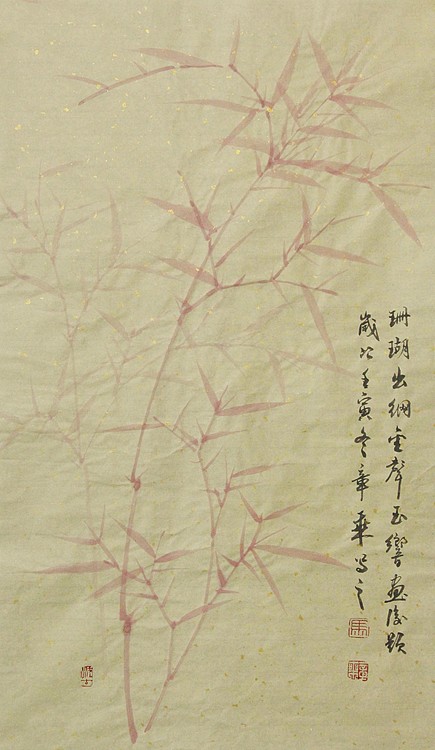 珊瑚出網金聲玉響畫後題
歲次壬寅冬章乘寫之